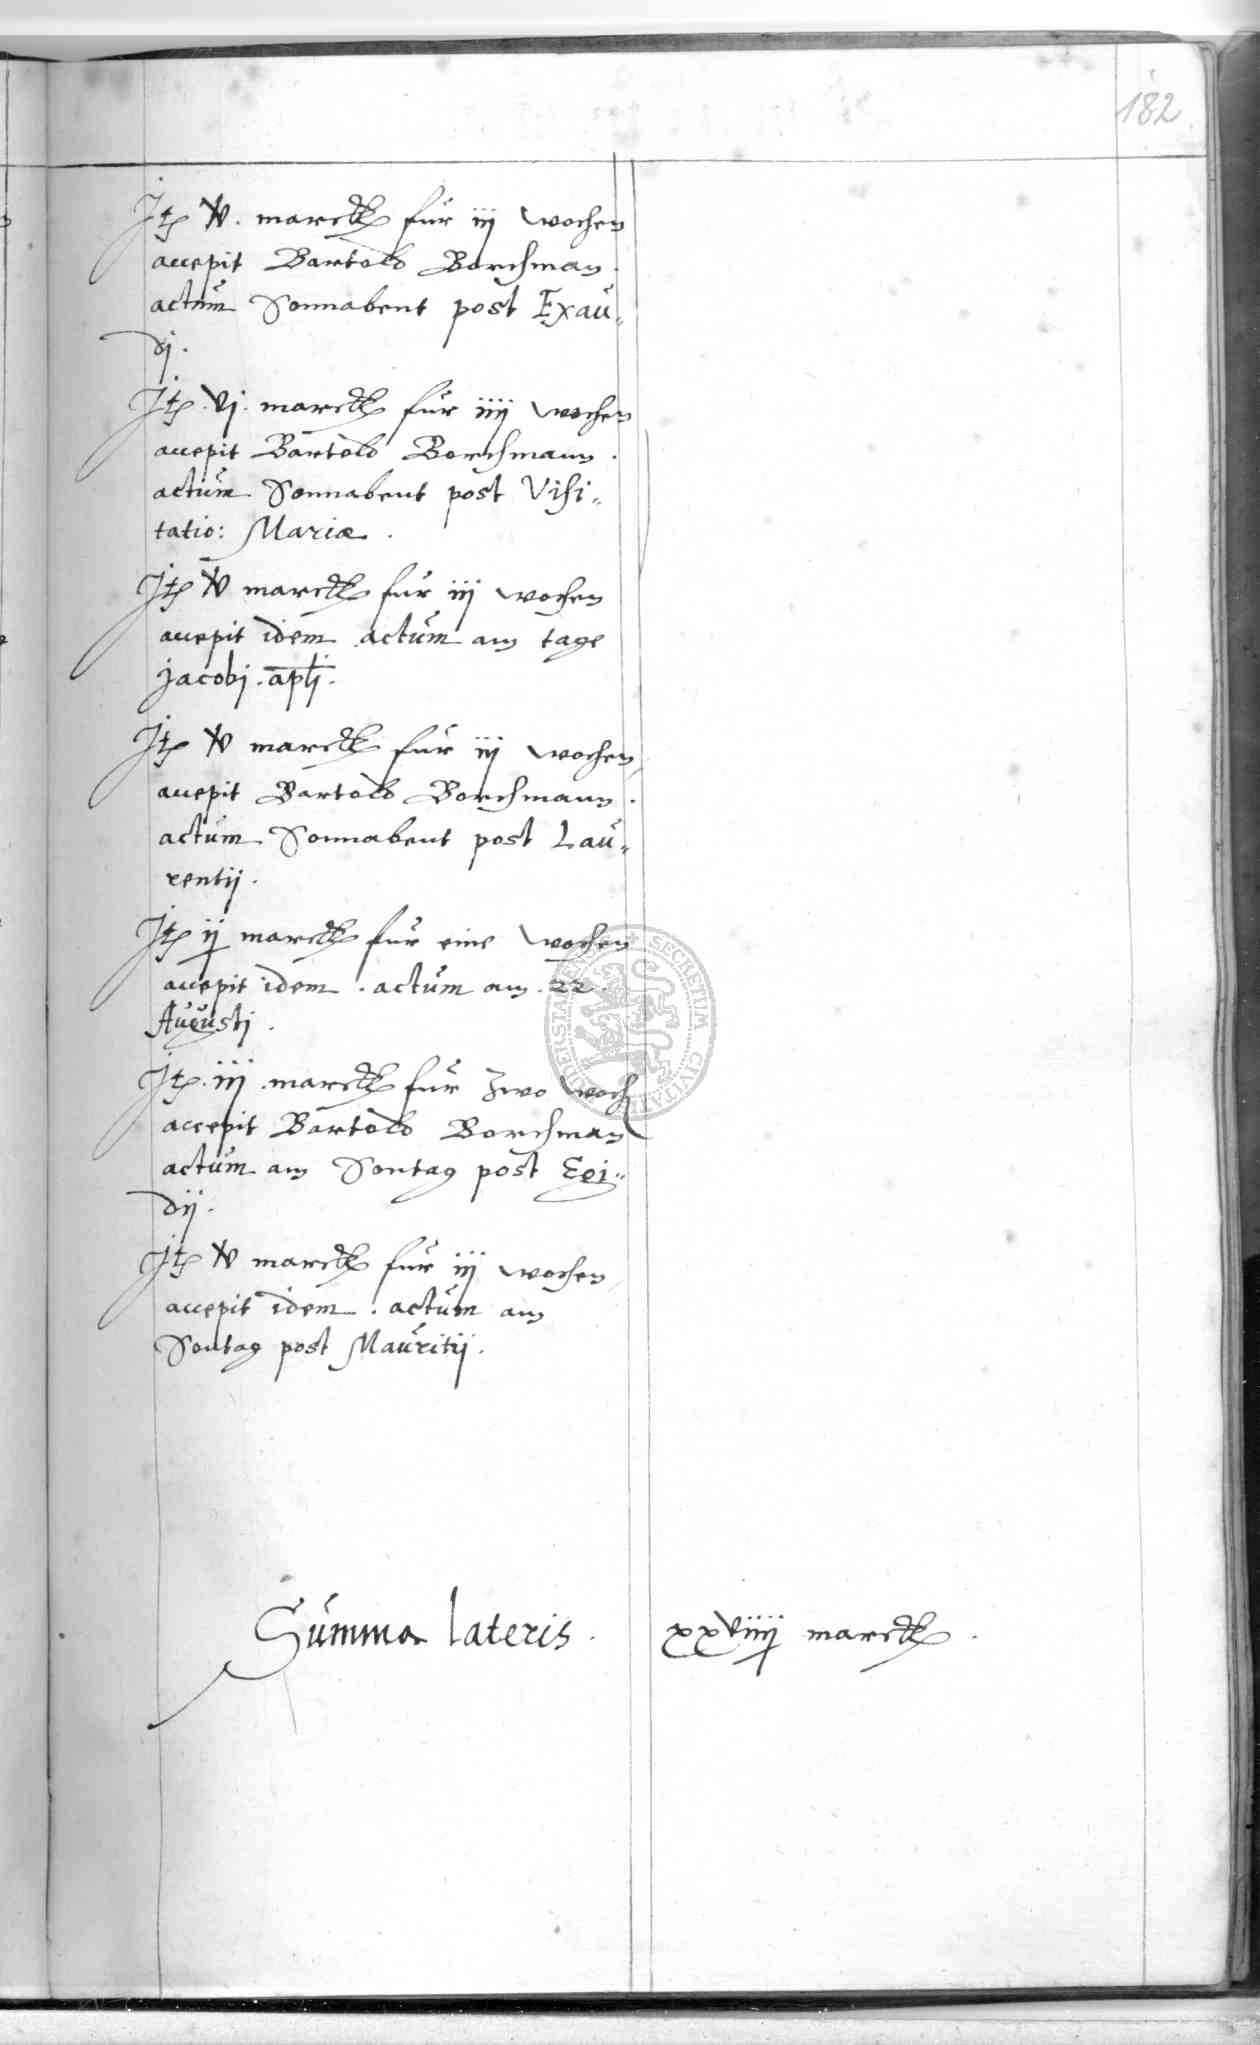 182
Jtem v. marck für iij wochen
accepit Bartold Borchman.
actum Sonnabent post Exau„
dj.
Jtem .vj. marck für iiij wochen
accepit Bartold Borchmann.
actum Sonnabent post Visi„
tatio: Mariæ.
Jtem v marck für iij wochen
accepit idem actum am tage
Jacobj. aplj.
Jtem v marck für iij wochen
accepit Bartold Borchmann.
actum Sonnabent post Lau„
rentij.
Jtem ij marck für eine wochen
accepit idem. actum am .22.
Augustj.
Jtem .iij. marck für zwo woch
accepit Bartold Borchman
actum am Sontag post Egi„
dij.
Jtem v marck für iij wochen
accepit idem. actum am
Sontag post Mauritij.
Summa lateris. xxviiij marck.
SECRETUM CIVITATIS DUDERSTADENSIS